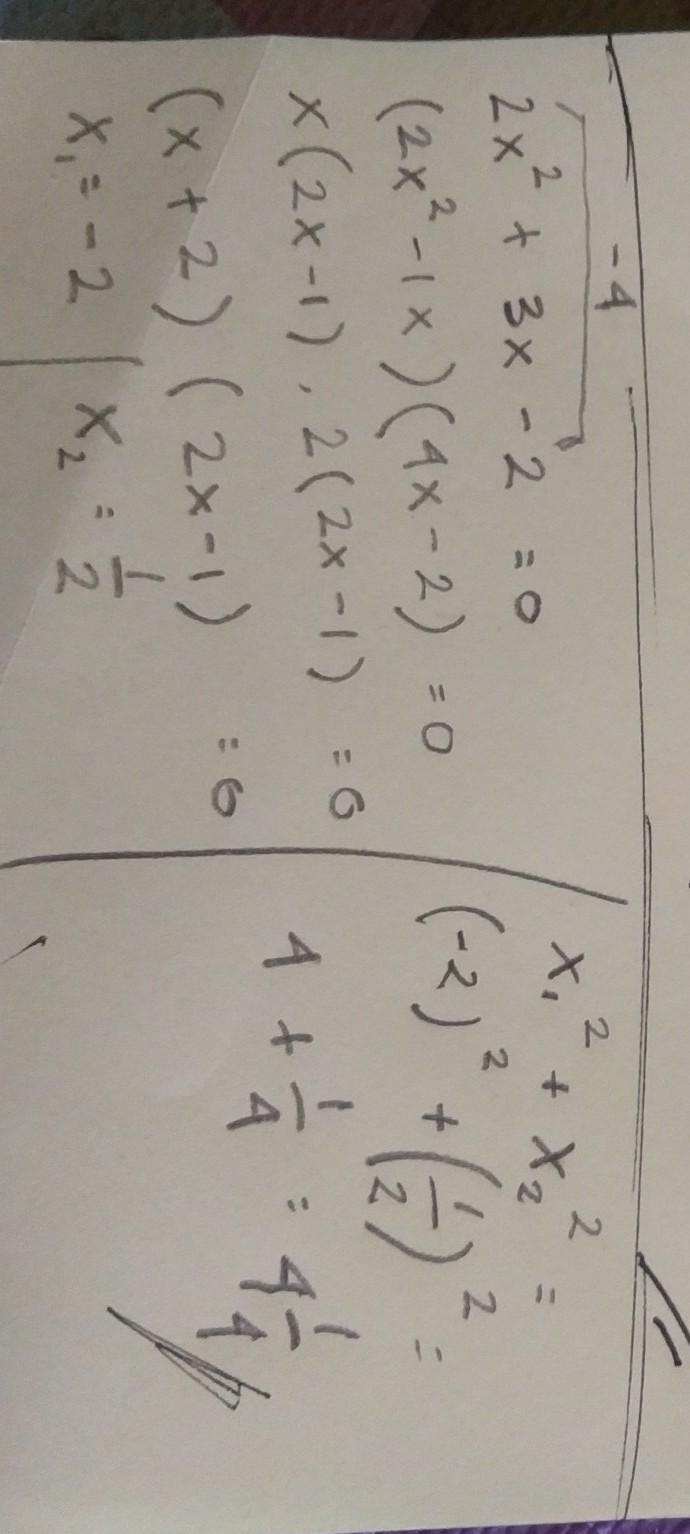 -4
2x² + 3x - 2 = 0
(2x² - 1x)(4x - 2) = 0
x(2x - 1), 2(2x - 1) = 0
(x + 2) (2x - 1) = 0
x₁ = -2 | x₂ = 1/2
x₁² + x₂² =
(-2)² + (1/2)² =
4 + 1/4 = 4 1/4